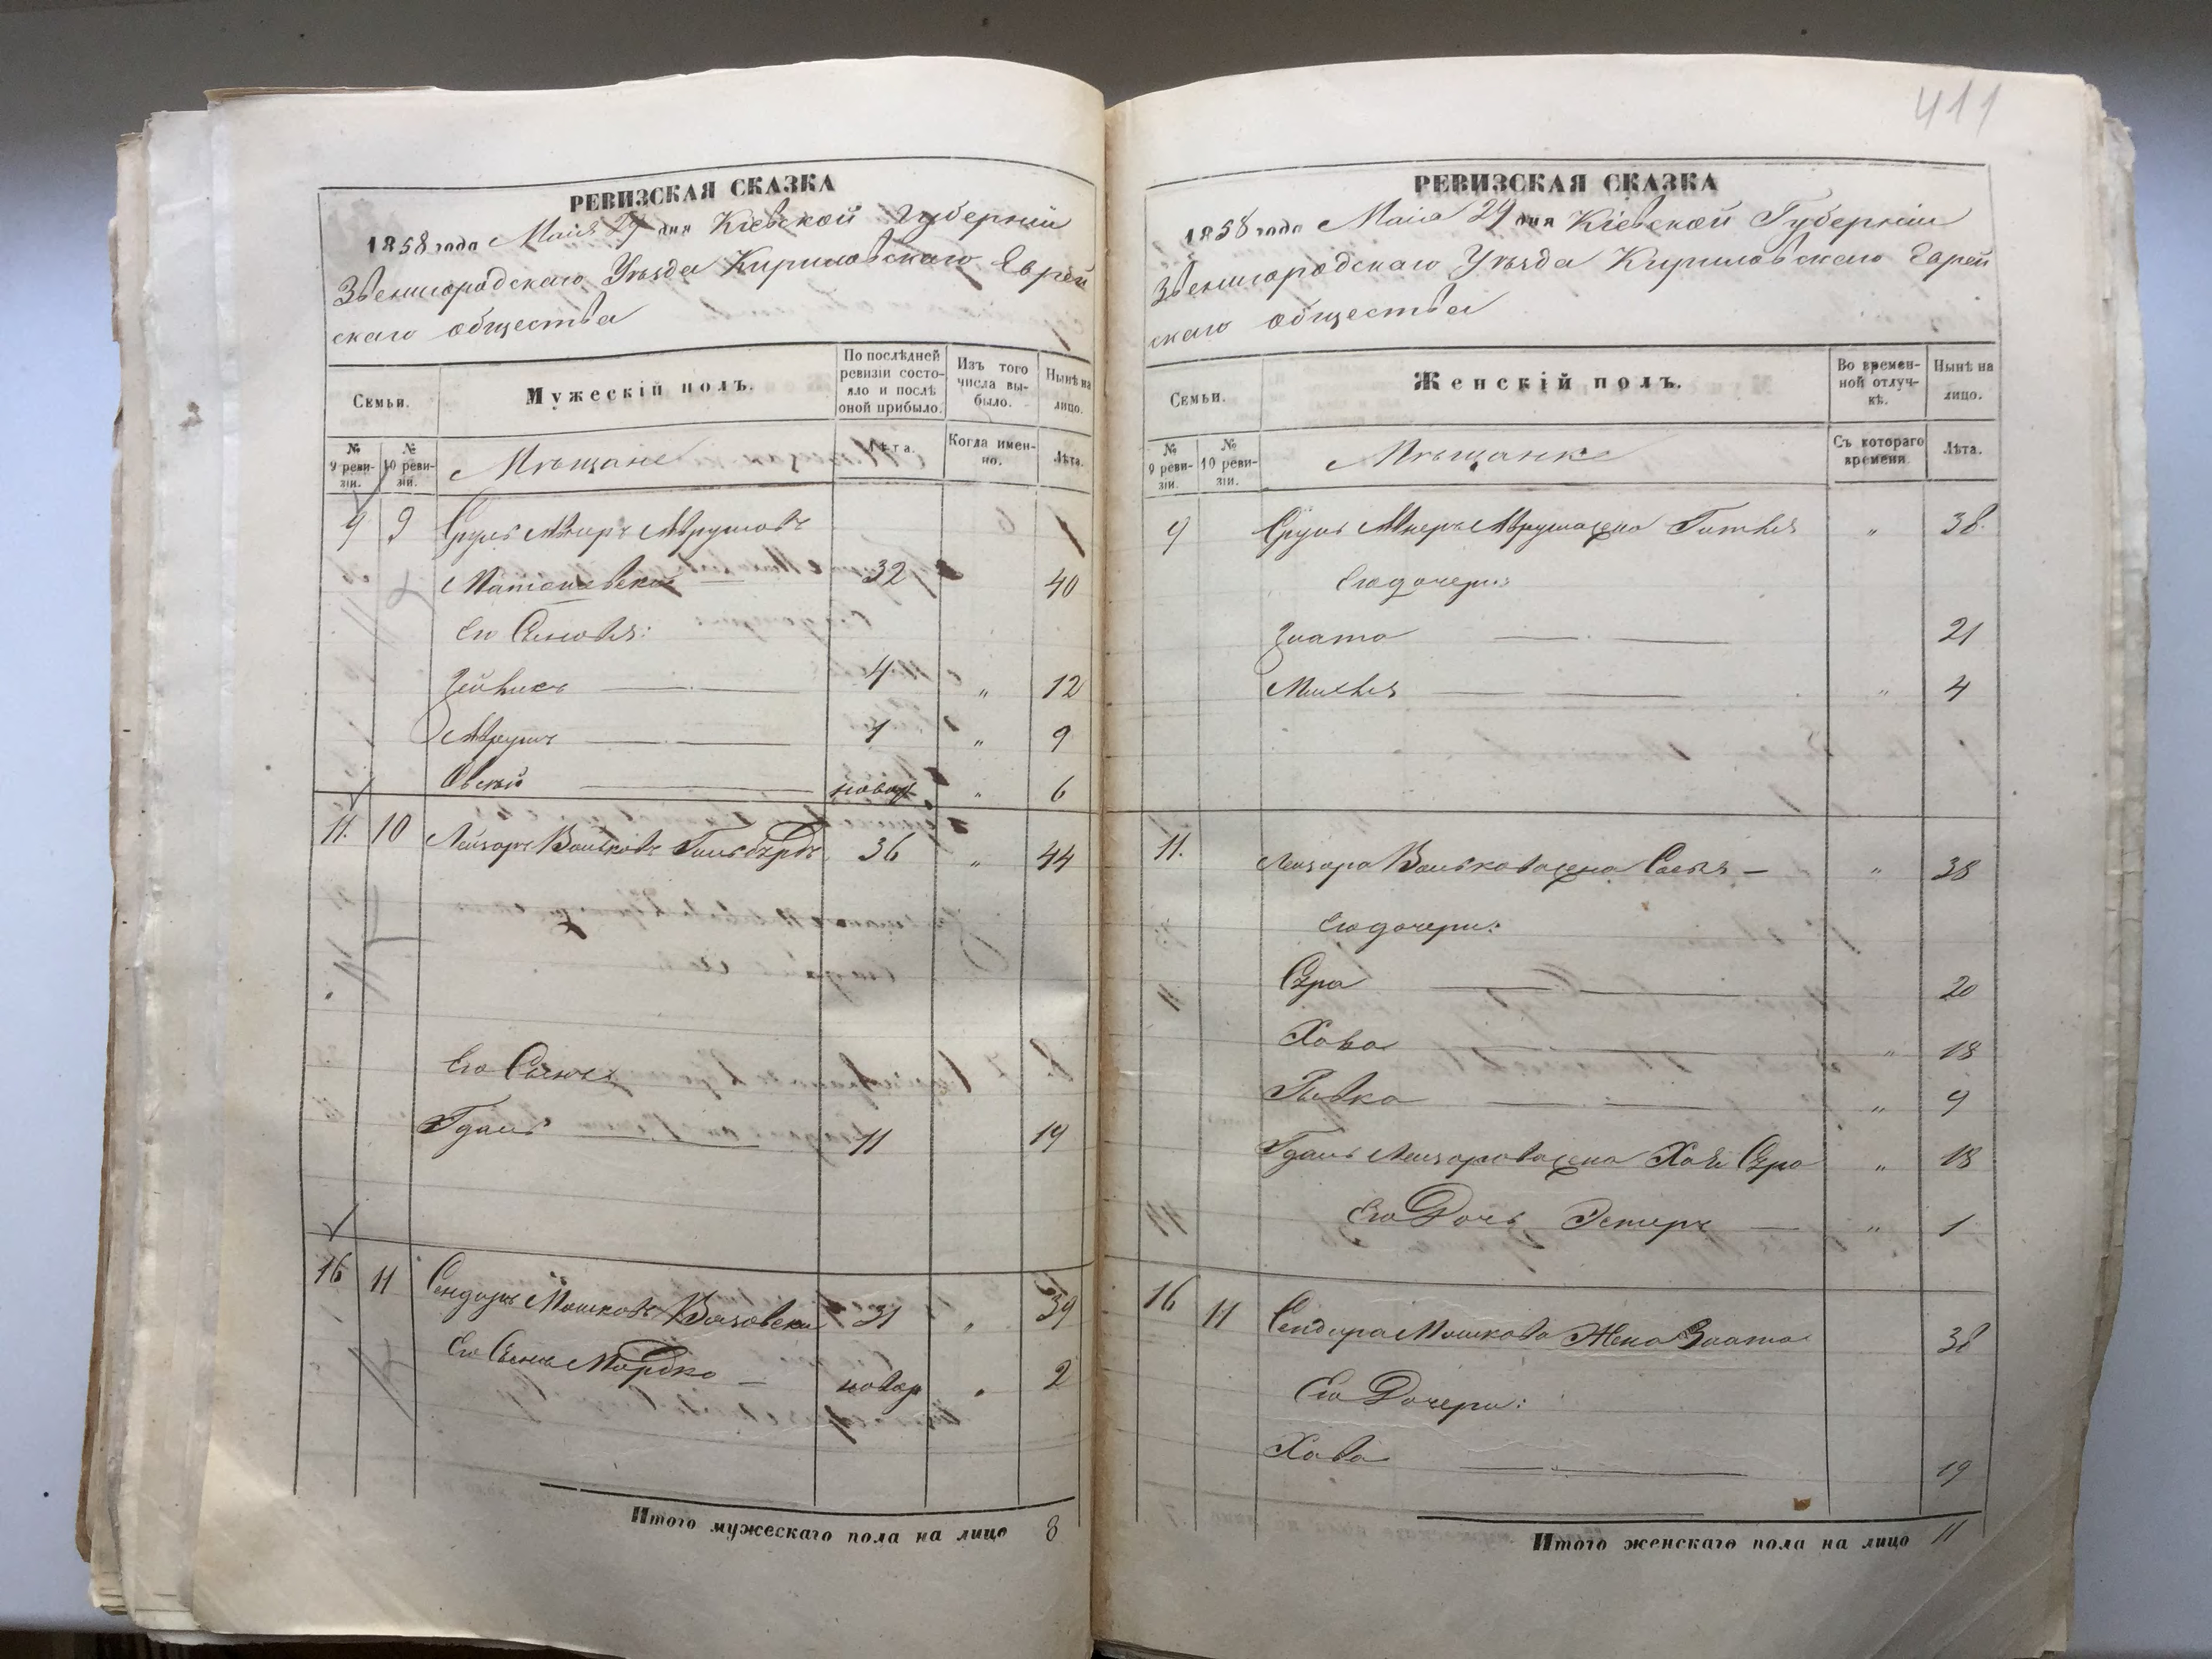 411
РЕВИЗСКАЯ СКАЗКА
1858 года Маія 29 дня Кіевской Губерніи
Звенигородскаго Уѣзда Кириловскаго Еврей
скаго общества
Семьи.
Мужескій полъ.
По послѣдней ревизіи состояло и послѣ оной прибыло.
Изъ того числа выбыло.
Нынѣ на лицо.
№ 9 ревизіи.
№ 10 ревизіи.
Мѣщане
Лѣта.
Когда именно.
Лѣта.
9 9 Сруль Меер Аврумовъ
32 40
Его Сыновья:
4 " 12
Аврумъ 1 " 9
Овсѣй новор " 6
11. 10 Лейзоръ Вольковъ 36 " 44
Его Сынъ
Гдаль 11 19
16 11 Сендеръ Мошковъ 31 " 39
Его Сынъ Мордко новор " 2
Итого мужескаго пола на лицо 8
РЕВИЗСКАЯ СКАЗКА
1858 года Маія 29 дня Кіевской Губерніи
Звенигородскаго Уѣзда Кириловскаго Еврей
скаго общества
Семьи.
Женскій полъ.
Во временной отлучкѣ.
Нынѣ на лицо.
№ 9 ревизіи.
№ 10 ревизіи.
Мѣщанки
Съ котораго времени
Лѣта.
9 Сруль Меера Аврумова жена Гитля " 38
Его дочери:
Злата 21
Михля " 4
11. Лейзора Волькова жена Сося " 38
Его дочери:
Сура 20
Хава " 18
Ривка " 9
Гдаля Лейзорова жена Хая Сура " 18
Его Дочь Эстеръ " 1
16 11 Сендера Мошкова Жена Злата 38
Его Дочери:
Хава 19
Итого женскаго пола на лицо 11